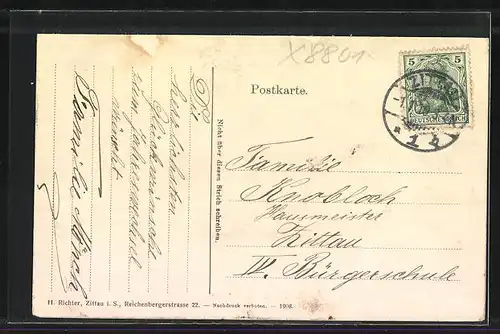 X8801
Postkarte.
5 5
ZITTAU
DEUTSCHES REICH
* 1 *
Die
herzlichsten
Glückwünsche
zum Jahreswechsel
wünscht
Familie Mönch
Nicht über diesen Strich schreiben.
Familie
Knobloch
Hausmeister
Zittau
IV. Bürgerschule
H. Richter, Zittau i. S., Reichenbergerstrasse 22. — Nachdruck verboten. — 1908.